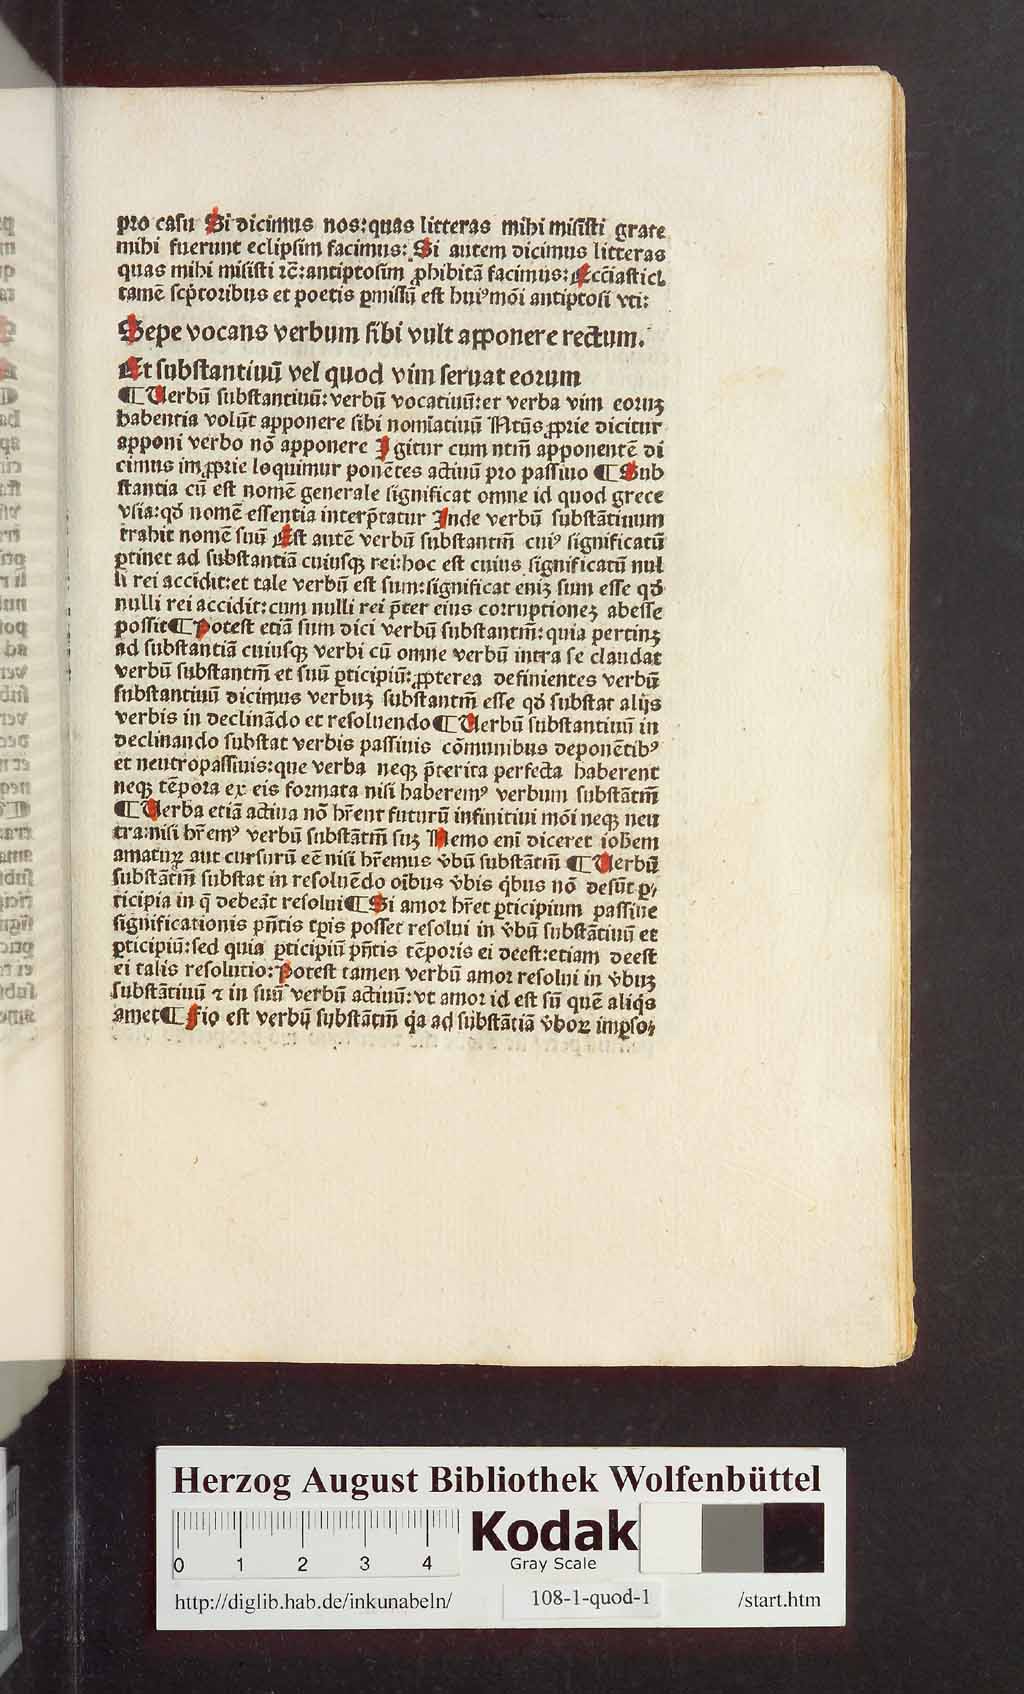 pro casu Si dicimus nos: quas litteras mihi misisti grate
mihi fuerunt eclipsim facimus: Si autem dicimus litteras
quas mihi misisti rc̄: antiptosim ꝓhibitā facimus: Ecc̄iastici
tamē scp̄toribus et poetis ꝑmissū est huiꝰmōi antiptosi vti:
Sepe vocans verbum sibi vult apponere rectum.
Et substantiuū vel quod vim seruat eorum
¶ Uerbū substantiuū: verbū vocatiuū: et verba vim eoruꝫ
habentia volūt apponere sibi nomīatiuū Ntūs ꝓprie dicitur
apponi verbo nō apponere Igitur cum ntm̄ apponentē di
cimus imꝓprie loquimur ponētes actiuū pro passiuo ¶ Sub
stantia cū est nomē generale significat omne id quod grece
vsia: qd̄ nomē essentia interp̄tatur Inde verbū substātiuum
trahit nomē suū Est autē verbū substantm̄ cuiꝰ significatū
ꝑtinet ad substantiā cuiusqꝫ rei: hoc est cuius significatū nul
li rei accidit: et tale verbū est sum: significat eniꝫ sum esse qd̄
nulli rei accidit: cum nulli rei p̄ter eius corruptioneꝫ abesse
possit ¶ Potest etiā sum dici verbū substantm̄: quia pertinꝫ
ad substantiā cuiusqꝫ verbi cū omne verbū intra se claudat
verbū substantm̄ et suū ꝑticipiū: ꝓpterea definientes verbū
substantiuū dicimus verbuꝫ substantm̄ esse qd̄ substat alijs
verbis in declinādo et resoluendo ¶ Uerbū substantiuū in
declinando substat verbis passiuis cōmunibus deponētibꝰ
et neutropassiuis: que verba neqꝫ p̄terita perfecta haberent
neqꝫ tēpora ex eis formata nisi haberemꝰ verbum substātm̄
¶ Uerba etiā actiua nō hr̄ent futurū infinitiui mōi neqꝫ neu
tra: nisi hr̄emꝰ verbū substātm̄ suꝫ Nemo enī diceret iohem
amaturꝫ aut cursurū eē nisi hr̄emus v̄bū substātm̄ ¶ Uerbū
substātm̄ substat in resoluēdo oībus v̄bis qͥbus nō desūt ꝑ⸗
ticipia in q̄ debeāt resolui ¶ Si amor hr̄et ꝑticipium passiue
significationis pn̄tis tꝑis posset resolui in v̄bū substātiuū et
ꝑticipiū: sed quia ꝑticipiū pn̄tis tēporis ei deest: etiam deest
ei talis resolutio: Potest tamen verbū amor resolui in v̄buꝫ
substātiuū ⁊ in suū verbū actiuū: vt amor id est sū quē aliqͥs
amet ¶ Fio est verbū substātm̄ qͣ ad substātiā v̄boꝝ imꝑso⸗
Herzog August Bibliothek Wolfenbüttel
0 1 2 3 4
Kodak
Gray Scale
http://diglib.hab.de/inkunabeln/ 108-1-quod-1 /start.htm